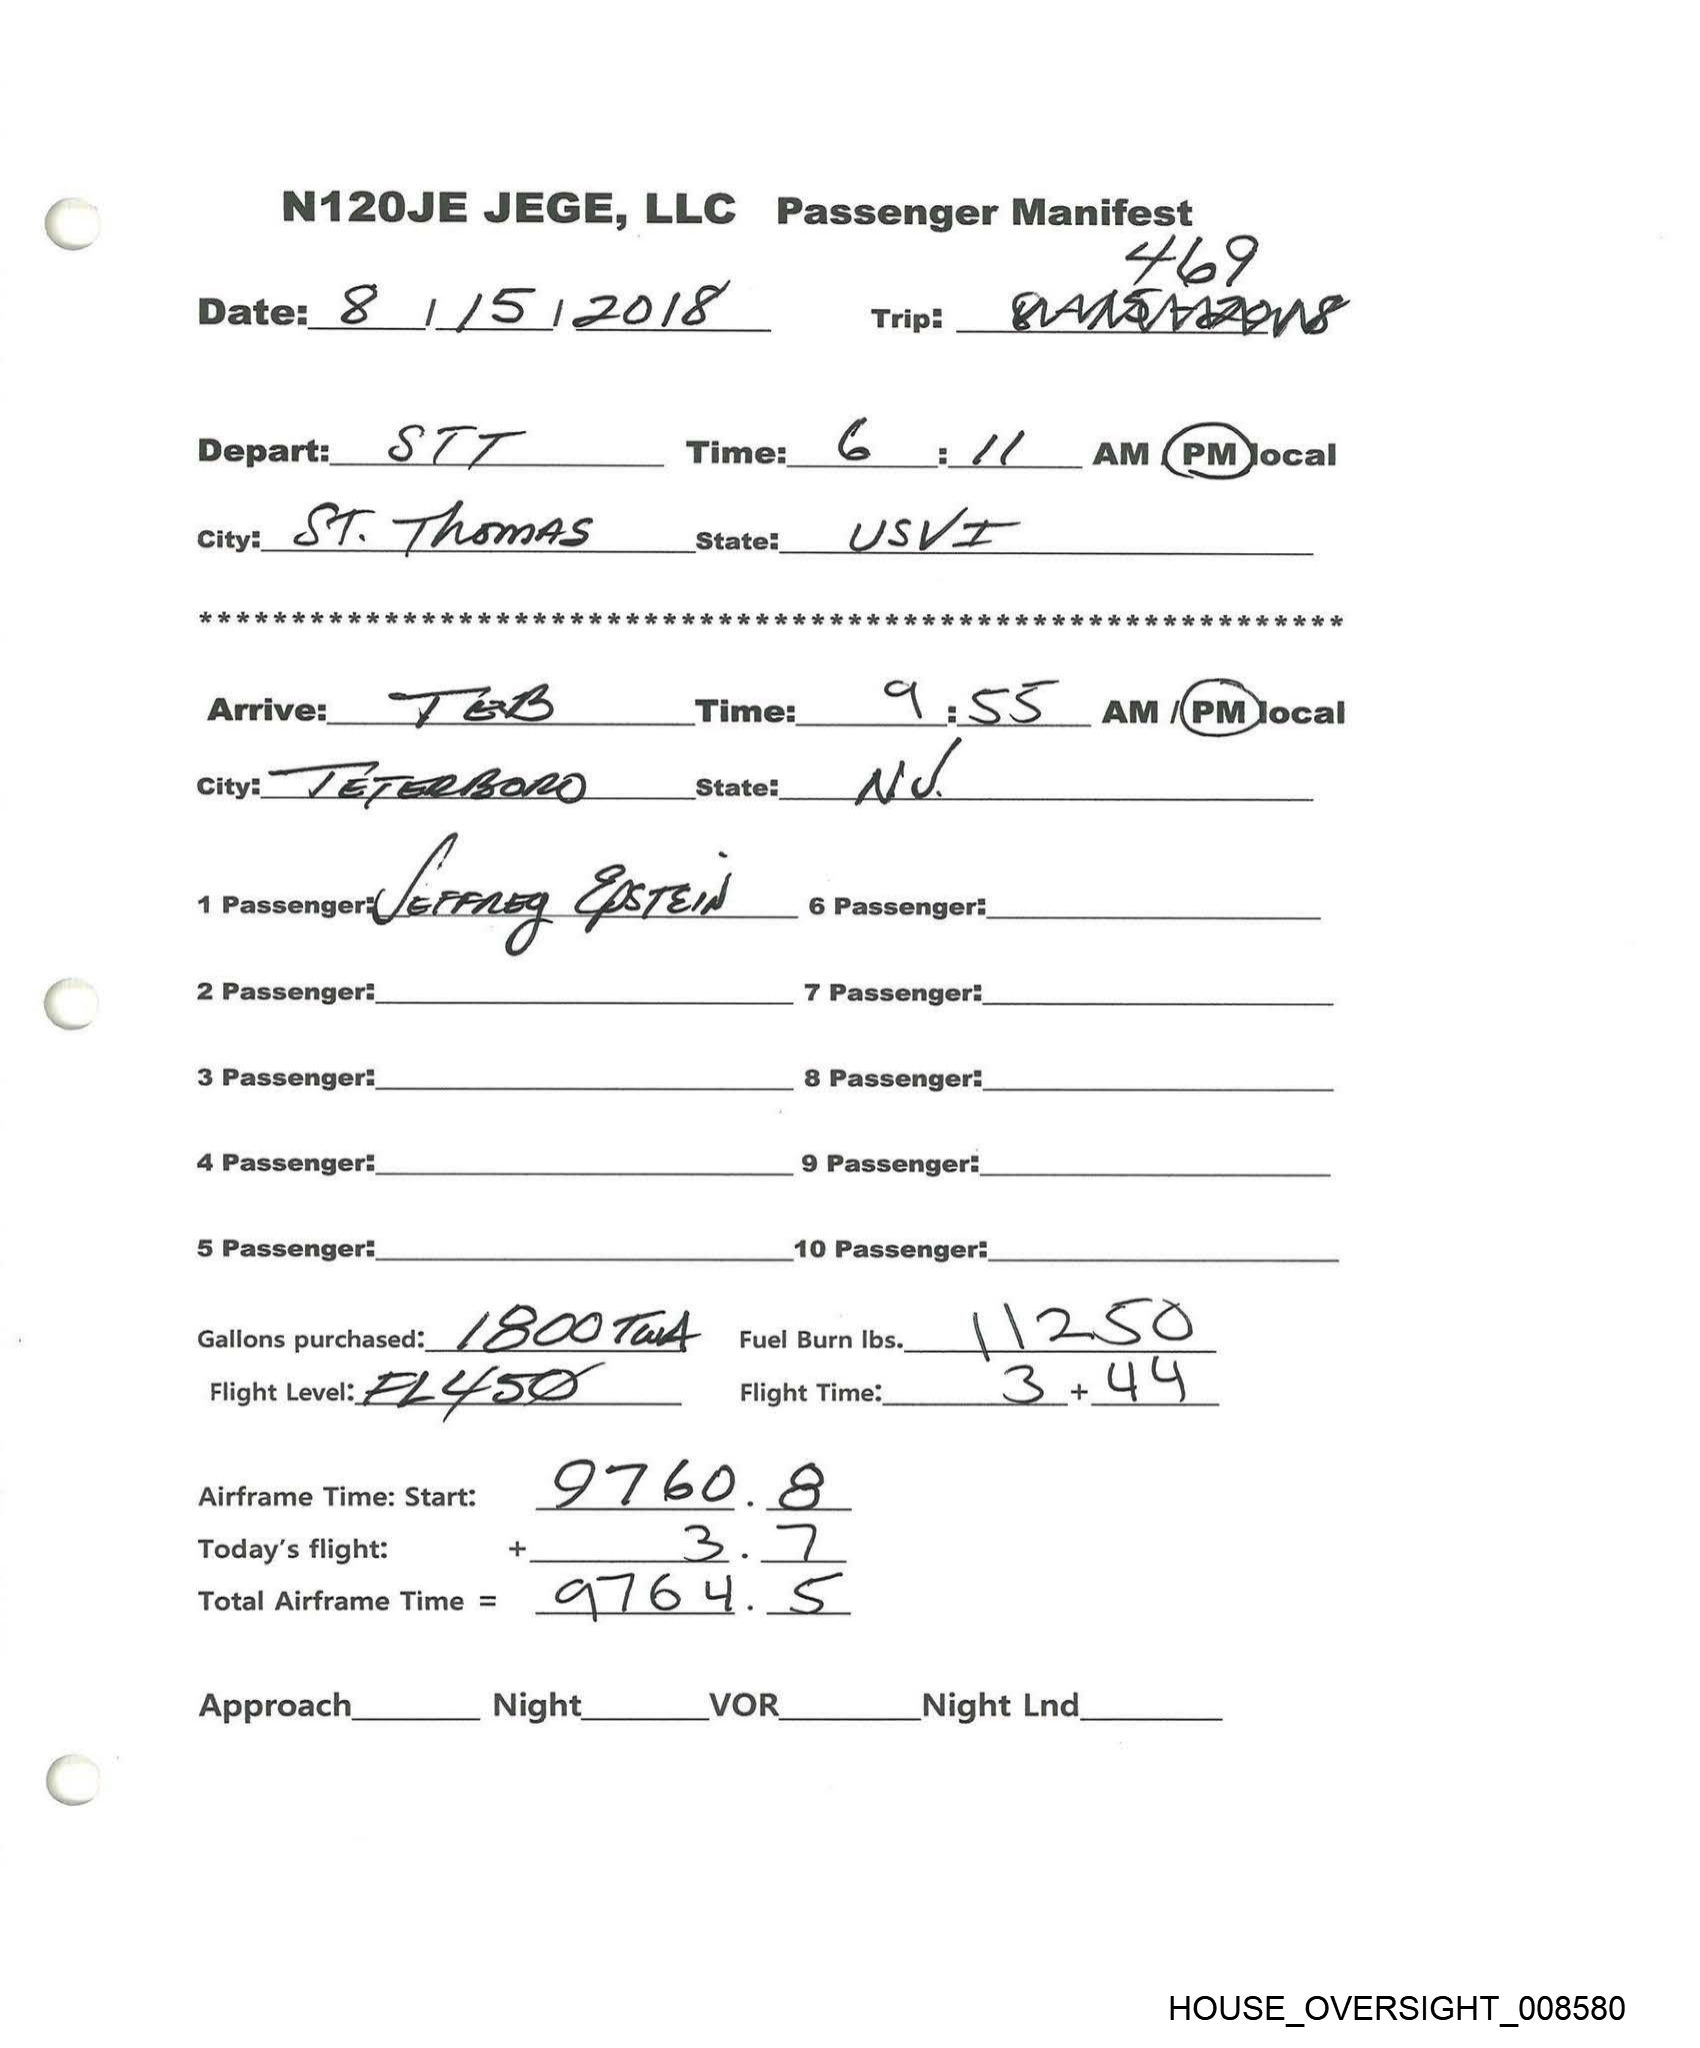 N120JE JEGE, LLC Passenger Manifest
469
Date: 8 / 15 / 2018 Trip:
Depart: STT Time: 6 : 11 AM / PM local
City: ST. THOMAS State: USVI
*******************************************************************
Arrive: TEB Time: 9 : 55 AM / PM local
City: TETERBORO State: NJ.
1 Passenger: JEFFREY EPSTEIN 6 Passenger:
2 Passenger: 7 Passenger:
3 Passenger: 8 Passenger:
4 Passenger: 9 Passenger:
5 Passenger: 10 Passenger:
Gallons purchased: 1800 Fuel Burn lbs. 11250
Flight Level: FL450 Flight Time: 3 + 44
Airframe Time: Start: 9760 . 8
Today's flight: + 3 . 7
Total Airframe Time = 9764 . 5
Approach Night VOR Night Lnd
HOUSE_OVERSIGHT_008580